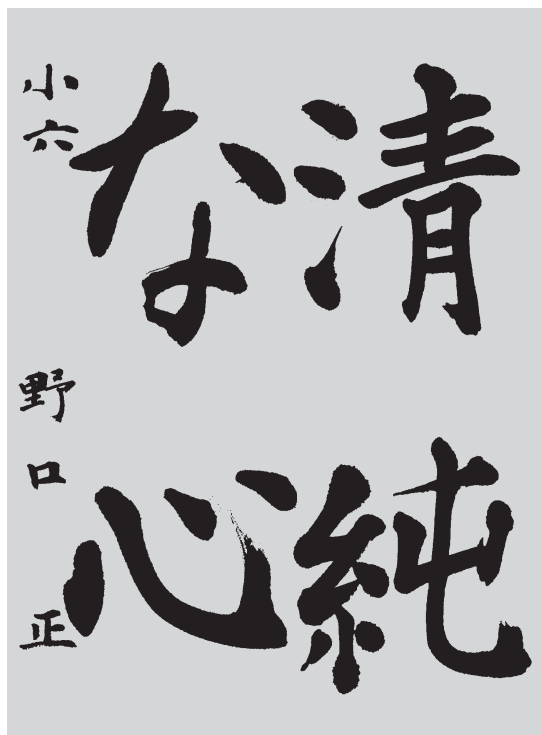 清純
な心
小六 野口正